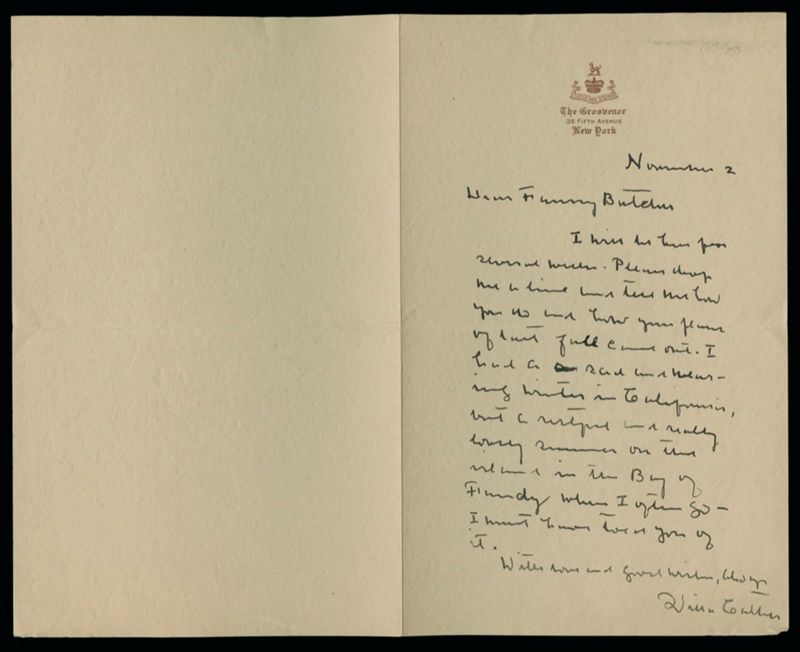 The Grosvenor
35 Fifth Avenue
New York
November 2
Dear Fanny Butcher
I will be here for
several weeks. Please drop
me a line and tell me how
you do and how your plans
of last fall came out. I
had a sad and wear-
ing winter in California,
but a restful and really
lovely summer on that
island in the Bay of
Fundy where I often go –
I must have told you of
it.
With love and good wishes, always
Willa Cather